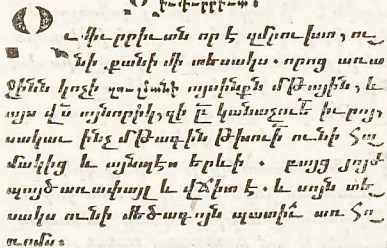 է զմրուխտ, ու
նի քանի մի տեսակս. որոց առա
ջինն կոչի այսինքն մթային, և
այս վս այնորիկ, զի կանաչուե իւրոյ,
սակաւ ինչ մթագին թխուե ունի հա
մակից և այնպէս երևի. բայց յոյժ
պայծառափայլ և վճիտ է. և սոյն տե
սակս ունի մեծագոյն պատիւ առ հը